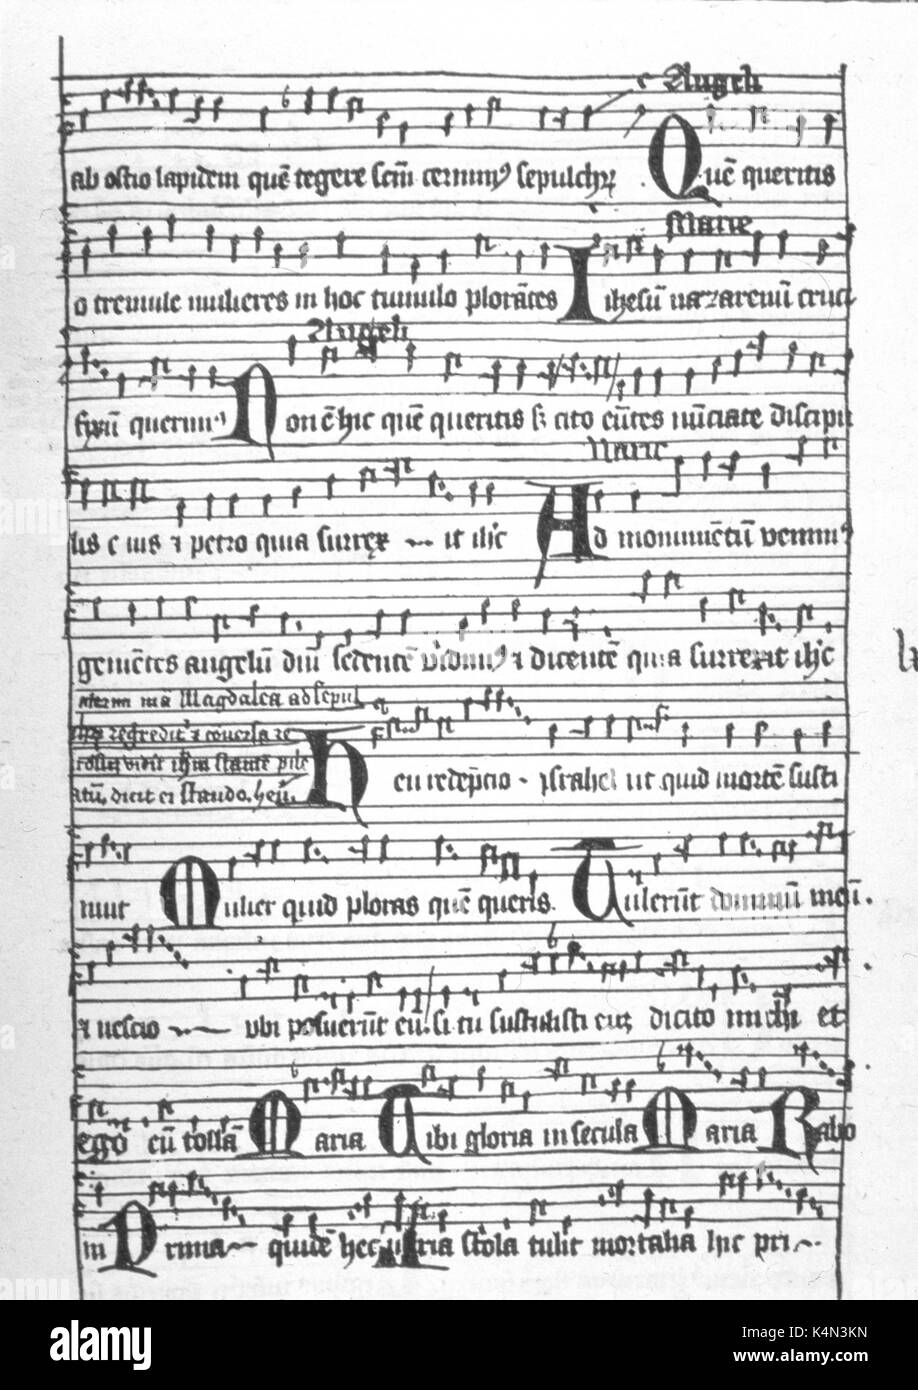 Angeli
ab ostio lapidem quē tegere scm̄ cernimꝰ sepulchꝝ Quē queritis
Marie
o tremule mulieres in hoc tumulo plorātes Ihesū nazarenū cruci
Angeli
fixū querimꝰ Non ē hic quē queritis sꝫ cito eūtes nūciate discipu
Marie
lis eius ⁊ petro quia surrex it ihc Ad monumētū venimꝰ
gemētes angelū dn̄i sedentē vidimꝰ ⁊ dicentē quia surrexit ihc
Magdalēa ad sepul
regredit
vidit ihm stantē
dicit ei stando. heu.
Heu redēpcio israhel ut quid mortē susti
nuit Mulier quid ploras quē queris. Tulerūt dominū meū.
⁊ nescio ubi posuerūt eū. si tu sustulisti eū dicito michi et
ego eū tollā Maria Tibi gloria in secula Maria Rabo
ni Prima quidē hec stola tulit mortalia hic pri
alamy
Image ID: K4N3KN
www.alamy.com